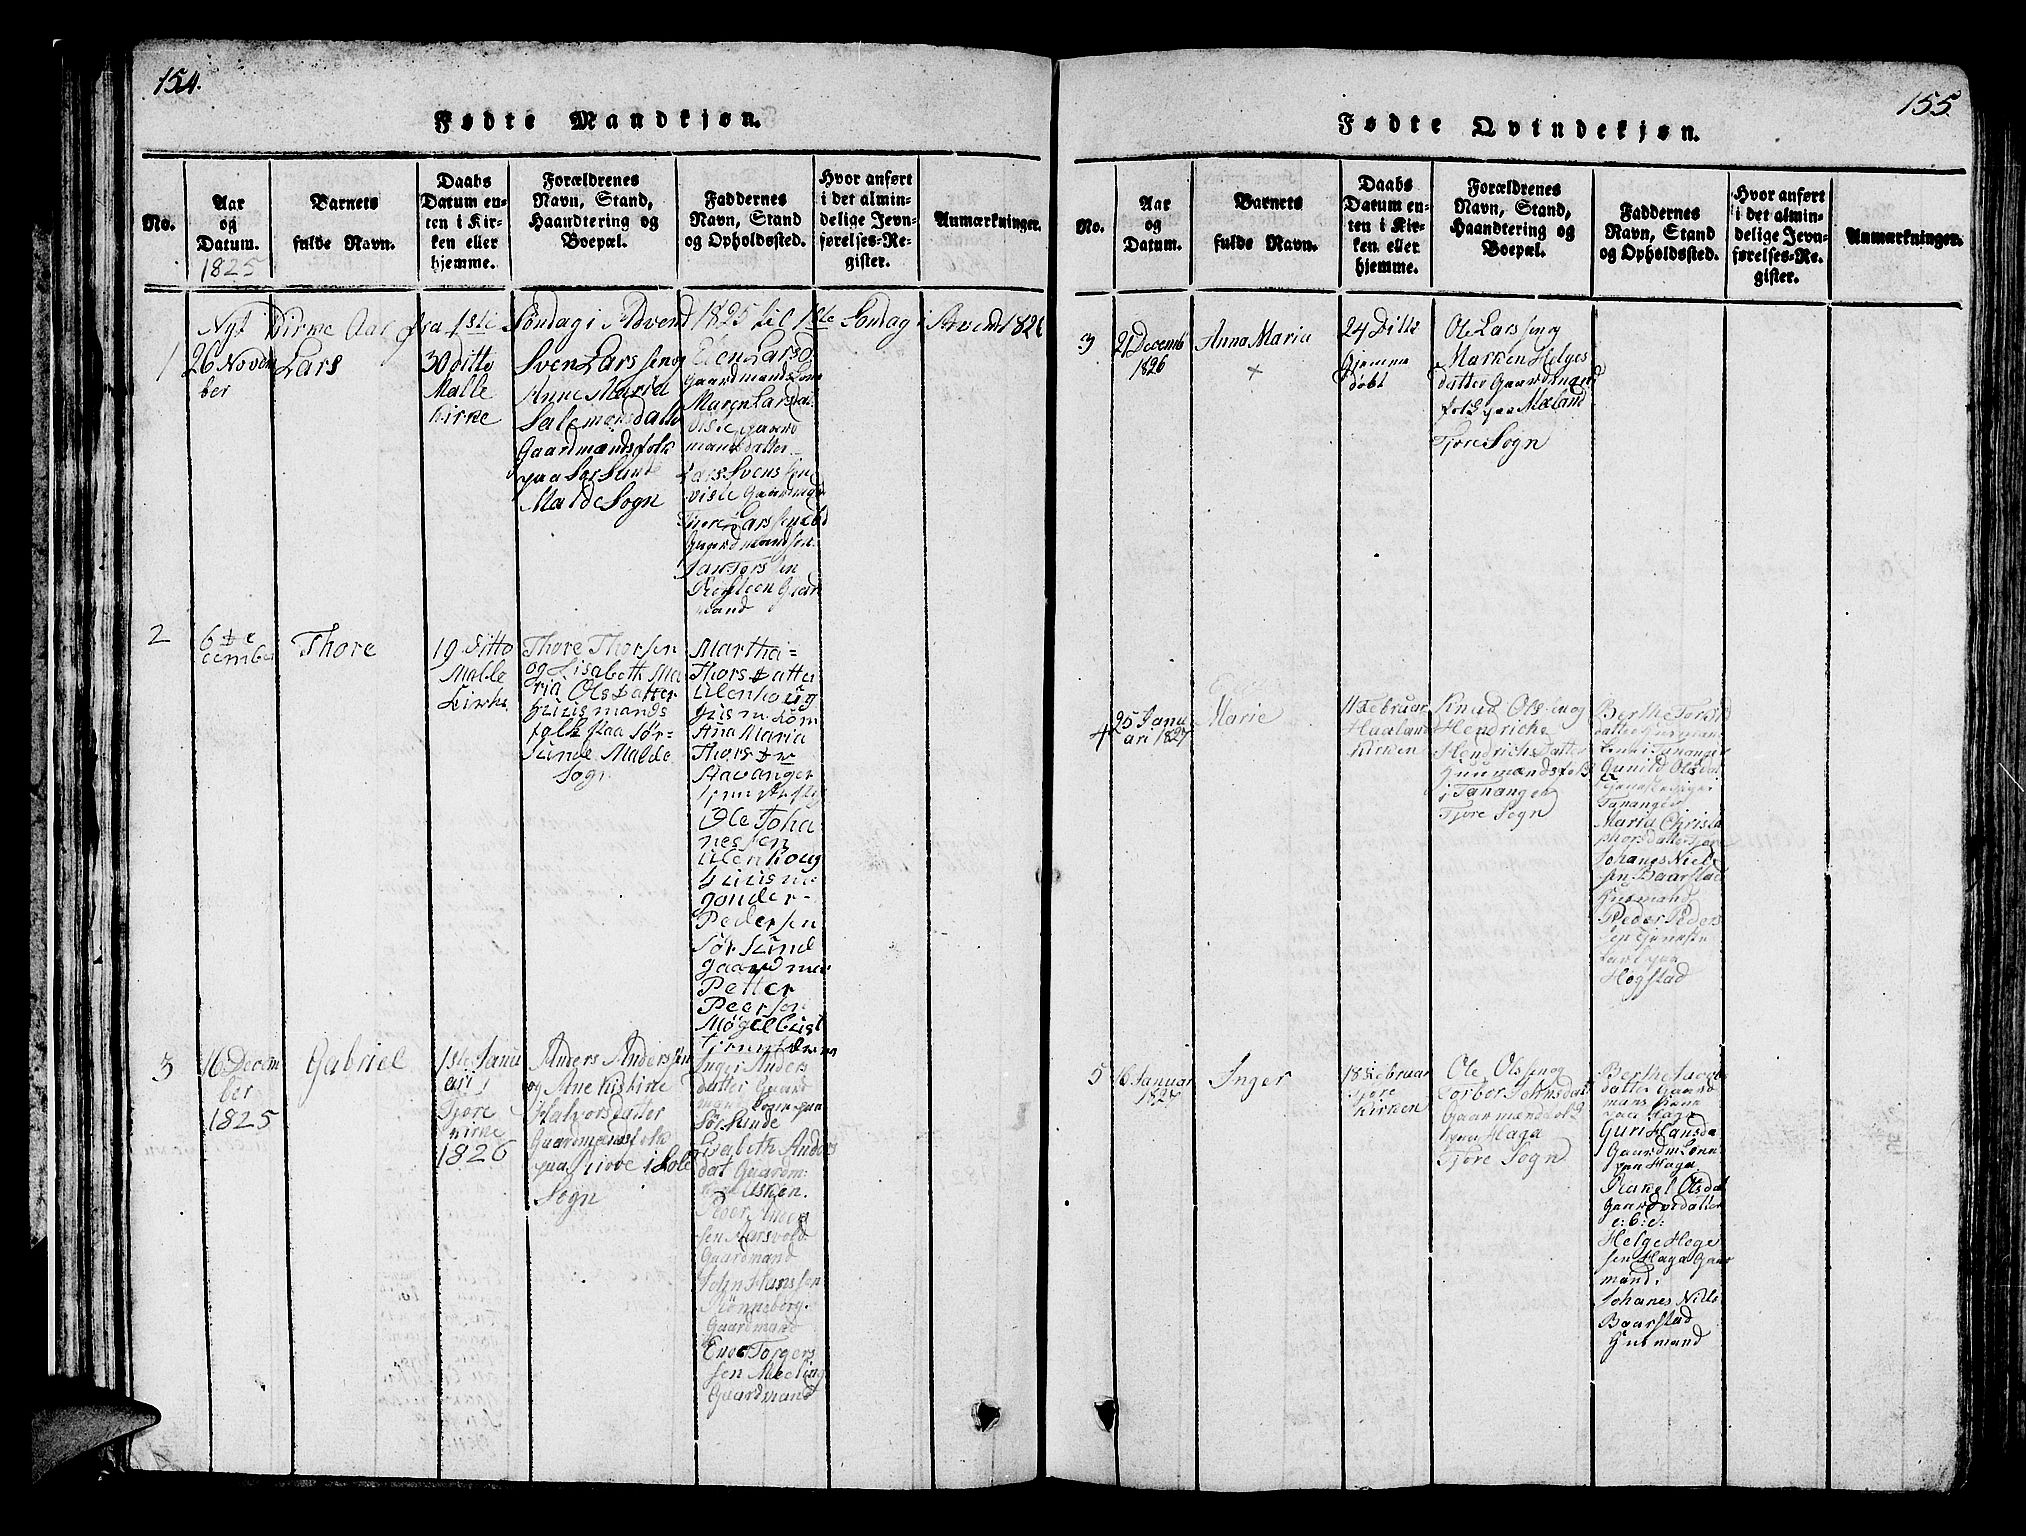 154.
Fødte Mandkjøn.
No.
Aar
og
Datum.
1825
Barnets
fulde Navn.
Daabs
Datum en-
ten i Kir-
ken eller
hjemme.
Forældrenes
Navn, Stand,
Haandtering og
Boepæl.
Faddernes
Navn, Stand
og Opholdssted.
Hvor anført
i det almin-
delige Jevn-
førelses-Re-
gister.
Anmærkninger.
Nyt Kirke Aar fra 1ste Søndag i Advend 1825 til 1ste Søndag i Advend 1826
1
26 Novem
ber
Lars
30 ditto
Malle
Kirke
Sven Larssen og
Anne Maria
Salemonsdatter
Gaardmandsfolk
paa Sør Sunde
Malde Sogn
Elen Larsd
Gaardmands kone
Maren Larsda
viste gaard
mandsdatter
Lars Svenssen
viste Gaardmand
Thore Larssen ibd
Gaardmandssøn
Gaard
mand
2
6 De
cember
Thore
19 ditto
Malle
Kirke
Thore Thorsen
og Lisabeth Ma
ria Olsdatter
Huusmands
folk paa Sør-
sunde Malde
Sogn
Martha
Thorsdatter
Ulenhoug
Huusm. kom
Ana Maria
Thorsdr
Stavanger
Ole Joha
nessen
Ulenhoug
Huusm.
Gonder
Pedersen
Sør Sund
gaardman
Petter
Peersen
Møgelbust
3
16 Decem
ber
1825
Gabriel
1ste Janu
ari
Tjore
Kirke
1826
Anders Anderssøn
og Ane Kistine
Halvorsdatter
Gaardmansfolk
paa i Sole
Sogn
Inger Anders
datter Gaard
mands kone paa
Sør Sunde
Lisabeth Anders
dat Gaardm
Peder
sen Aarsvold
Gaardmand
John Hanssen
Rønneberg
Gaardmand
Enoc Torgers
sen Meeling
Gaardmand
155.
Fødte Qvindekjøn.
No.
Aar
og
Datum.
Barnets
fulde Navn.
Daabs
Datum en-
ten i Kir-
ken eller
hjemme.
Forældrenes
Navn, Stand,
Haandtering og
Boepæl.
Faddernes
Navn, Stand
og Opholdssted.
Hvor anført
i det almin-
delige Jevn-
førelses-Re-
gister.
Anmærkninger.
3
21 Decemb
1826
Anna Maria
+
24 Ditto
Hjemme
døbt
Ole Larssen og
Marken Helges
datter Gaardmand
folk paa Meland
Tjore Sogn
4
25 Janu
ari 1827
Marie
11 Februar
Haaland
Kirken
Knud Olssen og
Hendriche
Hendrichsdatter
Huusmandsfolk
i Tananger
Tjore Sogn
Berthe
datter Husmans
kone i Tananger
Gunild Olsdat
Tjenestepige
Tananger
Maria Christo
phorsdatter Tjore
Johanes Niels
sen Baarstad
Husmand
Peder Peders
sen tjeneste
karl paa
Hogstad
5
16 Januar
1827
Inger
18 Februar
Tjore
Kirken
Ole Olssen og
Torbor Johnsdat
Gaarmandsfolk
paa Haga
Tjore Sogn
Berthe Jacobs
datter Gaard
mans kone
paa Haga
Guri Hansda
Gaardm Konn
paa Haga
Rakel Olsdat
Gaardvdatter
e: b: d:
Helge Helge
sen Haga Gaar
mand.
Johanes Niels
Baarstad
Husmand